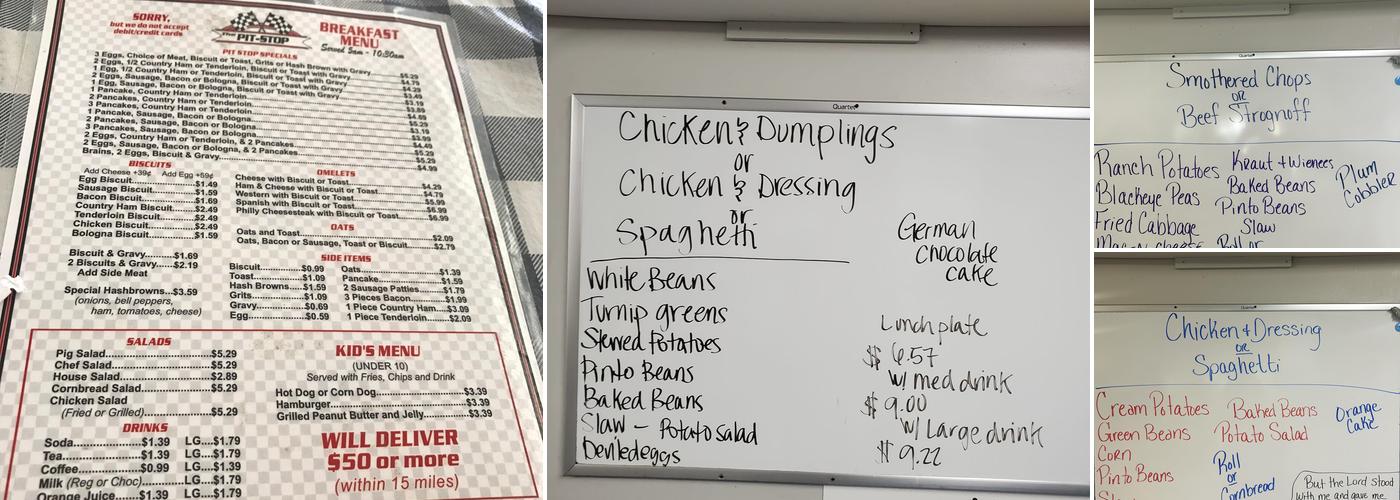 SORRY,
but we do not accept
debit/credit cards
The PIT-STOP
BREAKFAST
MENU
Served 5am - 10:30am
PIT STOP SPECIALS
3 Eggs, Choice of Meat, Biscuit or Toast, Grits or Hash Brown with Gravy
2 Eggs, 1/2 Country Ham or Tenderloin, Biscuit or Toast with Gravy
1 Egg, 1/2 Country Ham or Tenderloin, Biscuit or Toast with Gravy
2 Eggs, Sausage, Bacon or Bologna, Biscuit or Toast with Gravy
1 Egg, Sausage, Bacon or Bologna, Biscuit or Toast with Gravy
1 Pancakes, Country Ham or Tenderloin
2 Pancakes, Country Ham or Tenderloin
3 Pancakes, Country Ham or Tenderloin
1 Pancake, Sausage, Bacon or Bologna
2 Pancakes, Sausage, Bacon or Bologna
3 Pancakes, Sausage, Bacon or Bologna
2 Eggs, Country Ham or Tenderloin, & 2 Pancakes
2 Eggs, Sausage, Bacon or Bologna, & 2 Pancakes
Brains, 2 Eggs, Biscuit & Gravy
$5.29
$4.79
$4.29
$3.49
$3.19
$3.89
$4.89
$5.29
$3.19
$3.99
$4.49
$5.29
$5.29
$4.99
BISCUITS
Add Cheese +39¢ Add Egg +59¢
Egg Biscuit $1.49
Sausage Biscuit $1.59
Bacon Biscuit $1.69
Country Ham Biscuit $2.49
Tenderloin Biscuit $2.49
Chicken Biscuit $2.49
Bologna Biscuit $1.59
Biscuit & Gravy $1.69
2 Biscuits & Gravy $2.19
Add Side Meat
Special Hashbrowns $3.59
(onions, bell peppers,
ham, tomatoes, cheese)
OMELETS
Cheese with Biscuit or Toast $4.29
Ham & Cheese with Biscuit or Toast $4.79
Western with Biscuit or Toast $5.99
Spanish with Biscuit or Toast $6.99
Philly Cheesesteak with Biscuit or Toast $6.99
OATS
Oats and Toast $2.09
Oats, Bacon or Sausage, Toast or Biscuit $2.79
SIDE ITEMS
Biscuit $0.99
Toast $1.09
Hash Browns $1.59
Grits $1.09
Gravy $0.69
Egg $0.59
Oats $1.39
Pancake $1.59
2 Sausage Patties $1.79
3 Pieces Bacon $1.99
1 Piece Country Ham $3.09
1 Piece Tenderloin $2.09
SALADS
Pig Salad $5.29
Chef Salad $5.29
House Salad $2.89
Cornbread Salad $5.29
Chicken Salad
(Fried or Grilled) $5.29
DRINKS
Soda $1.39 LG $1.79
Tea $1.39 LG $1.79
Coffee $0.99 LG $1.39
Milk (Reg or Choc) LG $1.79
Orange Juice $1.39 LG $1.79
KID'S MENU
(UNDER 10)
Served with Fries, Chips and Drink
Hot Dog or Corn Dog $3.39
Hamburger $3.39
Grilled Peanut Butter and Jelly $3.39
WILL DELIVER
$50 or more
(within 15 miles)
Quartet
Chicken & Dumplings
or
Chicken & Dressing
or
Spaghetti
White Beans
Turnip greens
Stewed Potatoes
Pinto Beans
Baked Beans
Slaw - Potato salad
Deviledeggs
German
chocolate
cake
Lunch plate
$ 6.57
w/ med drink
$ 9.00
w/ Large drink
$ 9.22
Quartet
Smothered Chops
OR
Beef Strognoff
Ranch Potatoes
Blackeye Peas
Fried Cabbage
Mac-n-cheese
Kraut + Wienees
Baked Beans
Pinto Beans
Slaw
Roll or
Plum
Cobbler
Quartet
Chicken + Dressing
OR
Spaghetti
Cream Potatoes
Green Beans
Corn
Pinto Beans
Baked Beans
Potato Salad
Roll
or
Cornbread
Orange
Cake
But the Lord stood
with me and gave me